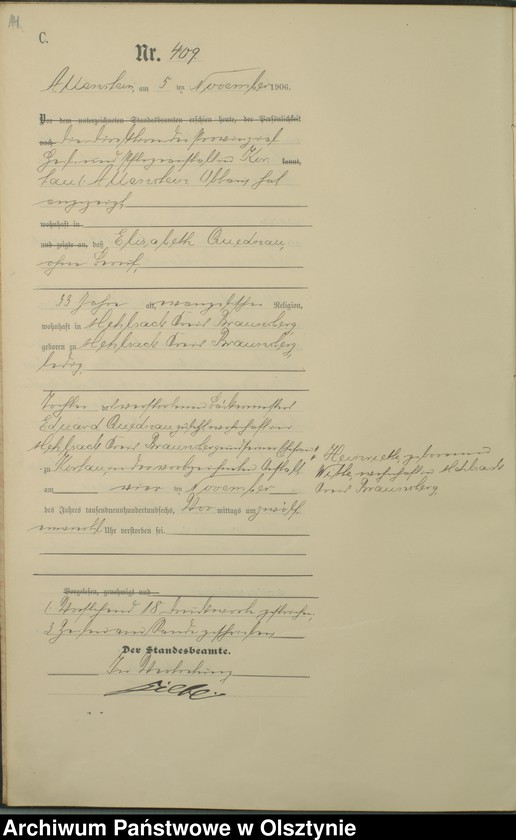 C.
Nr. 409
Allenstein, am 5 ten November 1906.
Vor dem unterzeichneten Standesbeamten erschien heute, der Persönlichkeit
nach
Heil und Pflegeanstalt in Kor kannt,
tau / Allenstein hat
angezeigt
wohnhaft in
und zeigte an, daß Elisabeth Quednau,
ohne Beruf,
33 Jahre alt, evangelischer Religion,
wohnhaft in Mehlsack Kreis Braunsberg
geboren zu Mehlsack Kreis Braunsberg,
ledig,
Tochter verstorbenen Bäckermeisters
Eduard Quednau zuletzt wohnhaft in
Mehlsack Kreis Braunsberg und seiner Ehefrau
Henriette geborenen
Witte, wohnhaft in Mehlsack
Kreis Braunsberg,
zu Kortau, in der vorbezeichneten Anstalt
am vier ten November
des Jahres tausendneunhundertundsechs, Vor mittags um zwölf
Uhr verstorben sei.
Vorgelesen, genehmigt und
Vorstehend 18 Druckworte gestrichen,
Der Standesbeamte.
In Vertretung
Archiwum Państwowe w Olsztynie